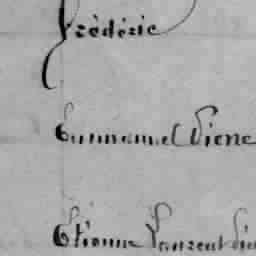 Frédéric
Emmanuel Diene
Etienne Laurent Die